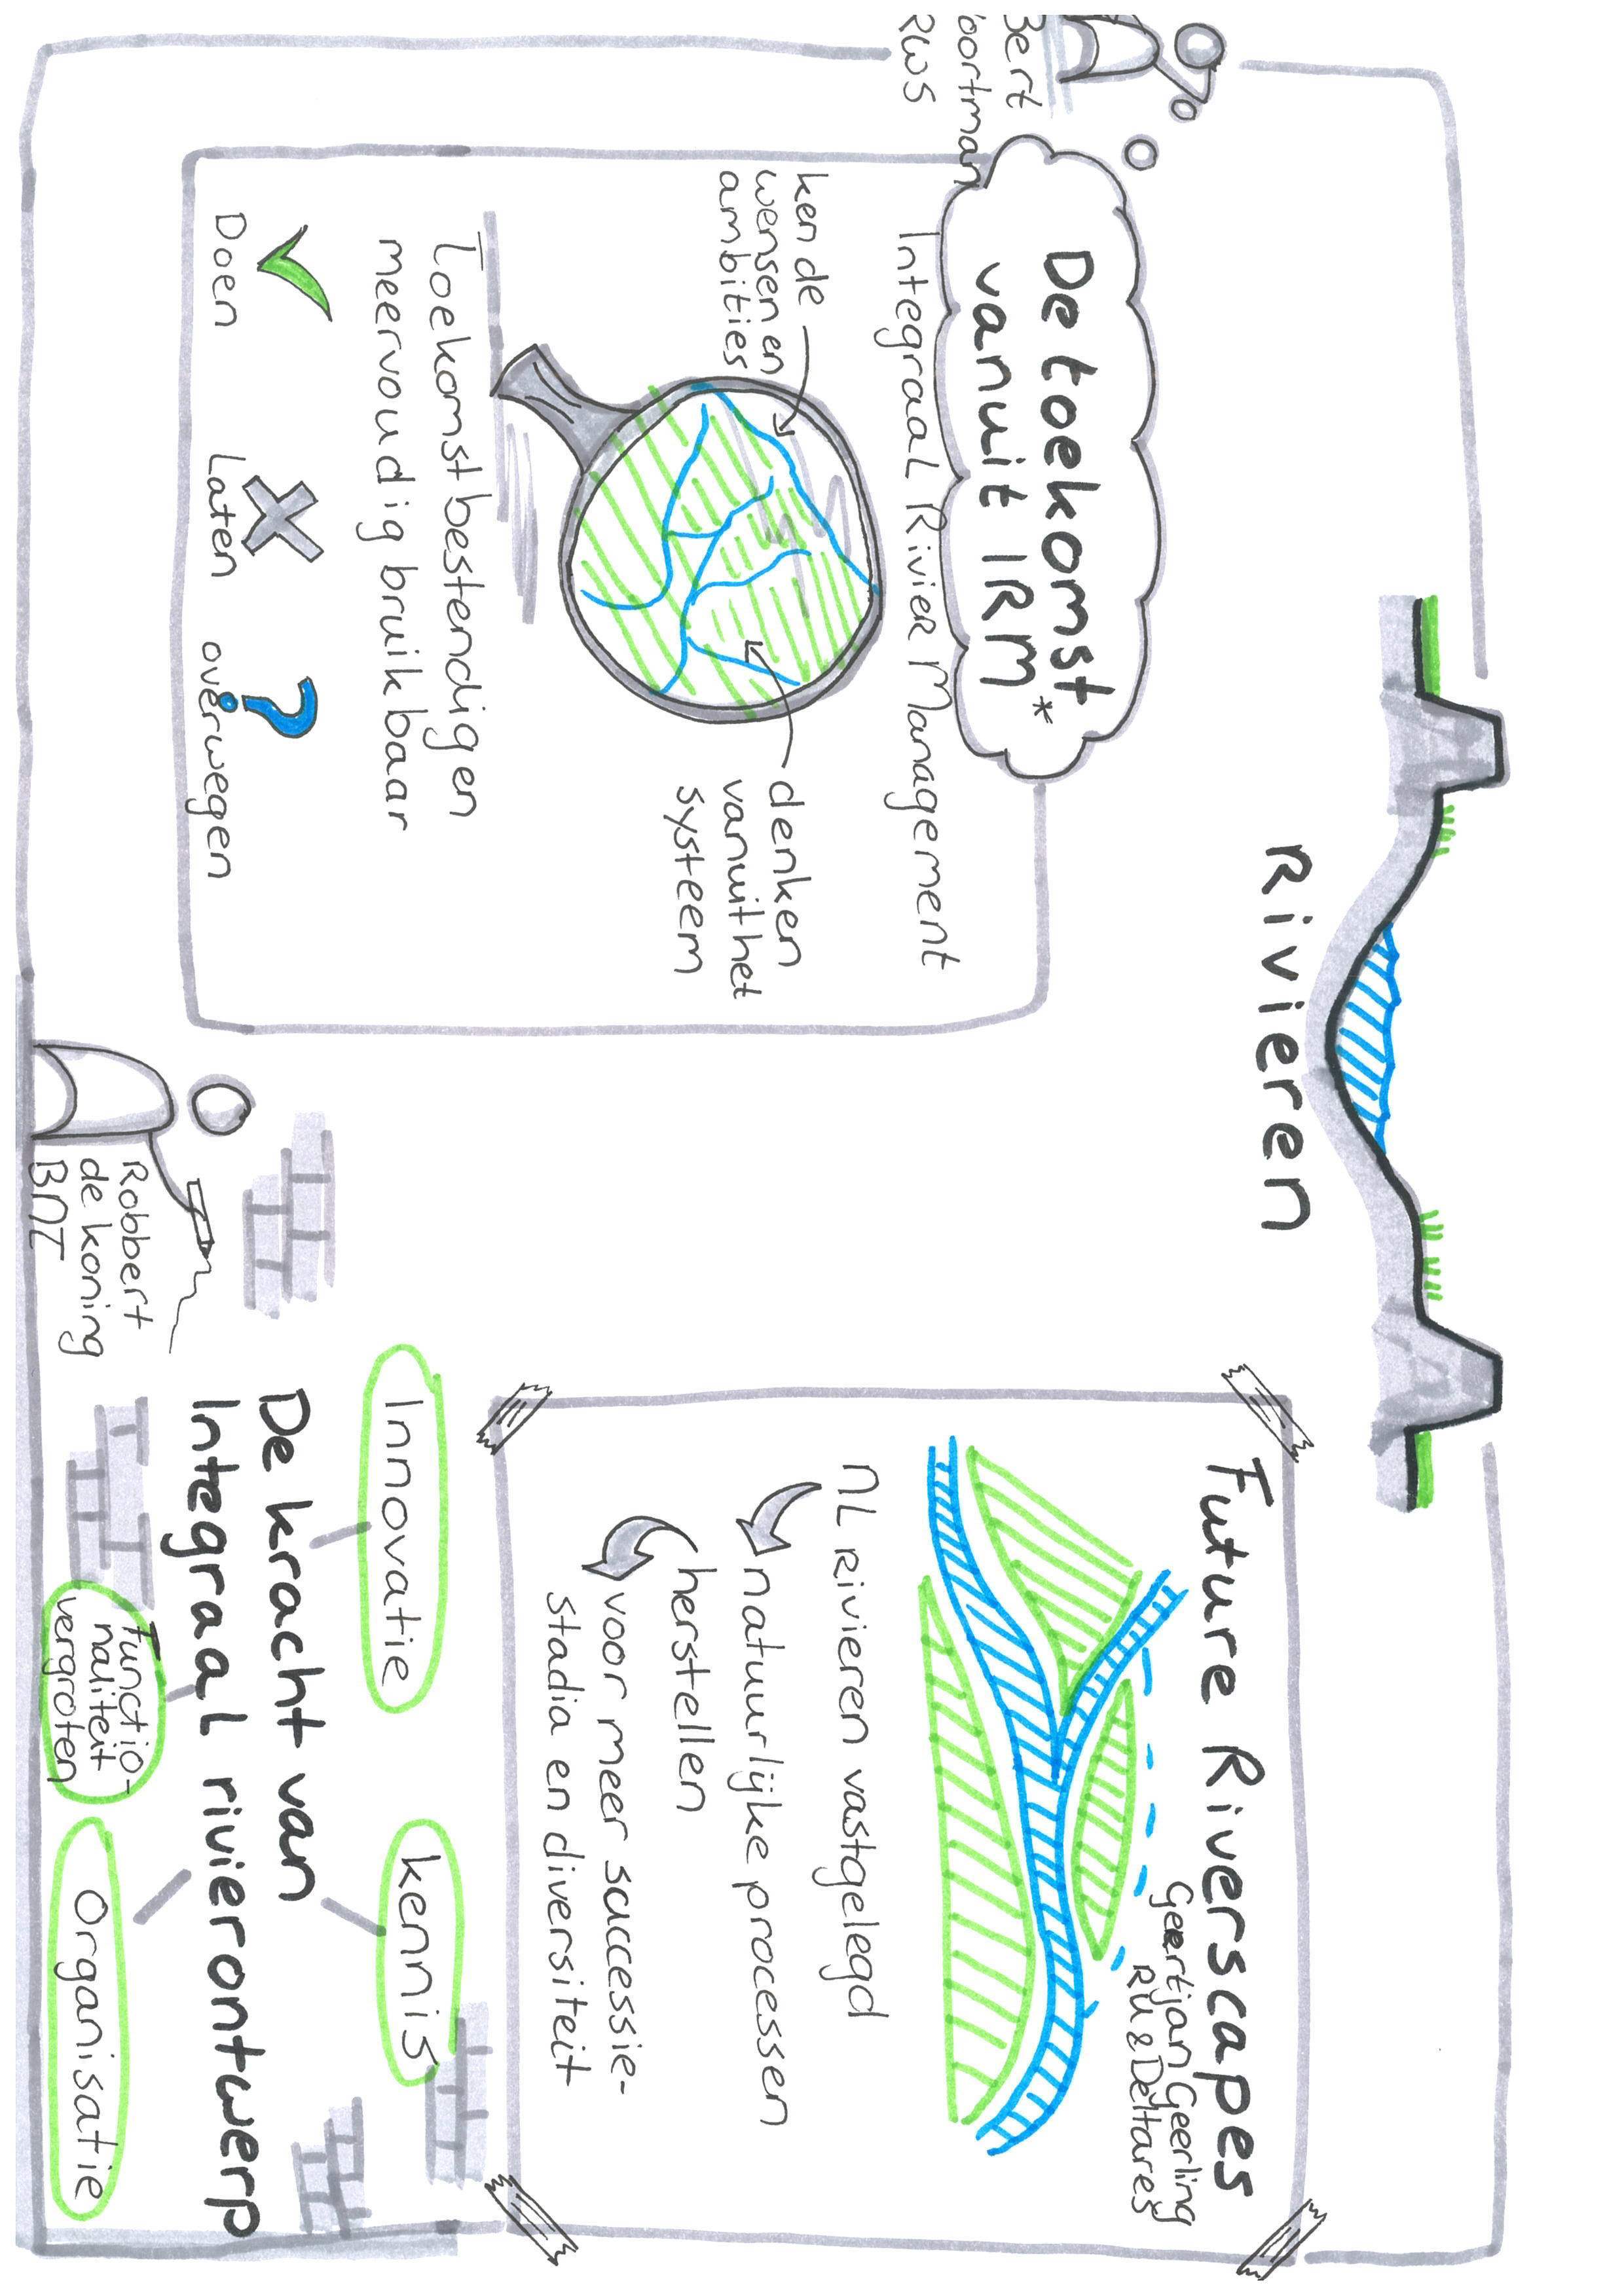 Rivieren
De toekomst
vanuit IRM*
Bert
RWS
Integraal Rivier Management
ken de
wensen en
ambities
denken
vanuit het
systeem
Toekomstbestendigen
meervoudig bruikbaar
Doen
Laten
overwegen
Future Riverscapes
Geertjan Geerling
RU & Deltares
NL rivieren vastgelegd
natuurlijke processen
herstellen
voor meer successie-
stadia en diversiteit
Robbert
de koning
BNT
Innovatie
kennis
De kracht van
Integraal rivierontwerp
Functio-
naliteit
vergroten
Organisatie